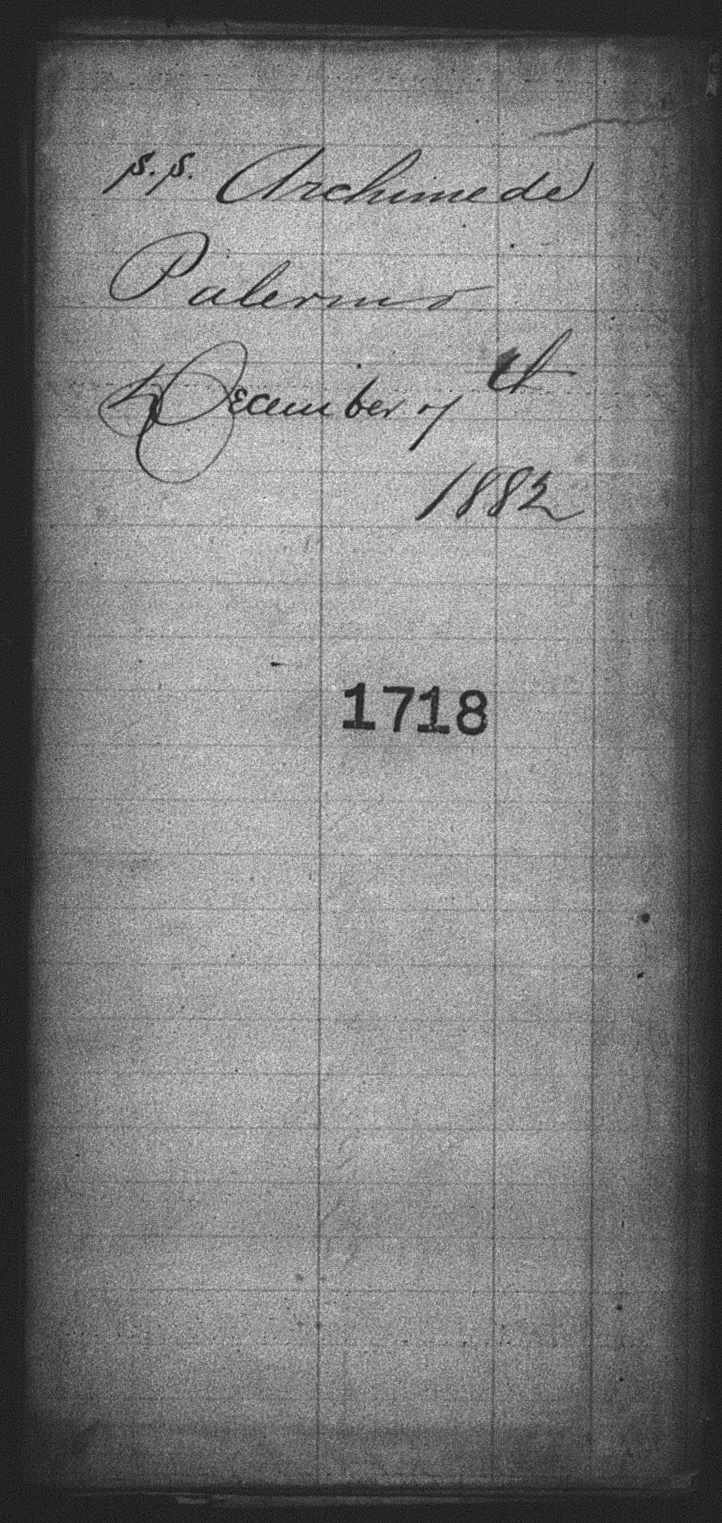 S.S. Archimede
Palermo
December 7th
1882
1718